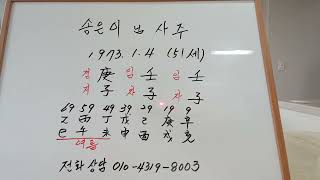 송은이 님 사주
1973.1.4 (51세)
경 庚 임 壬 임 壬
자 子 자 子 자 子
69 59 49 39 29 19 9
乙 丙 丁 戊 己 庚 辛
巳 午 未 申 酉 戌 亥
여름
전화상담 010-4319-8003